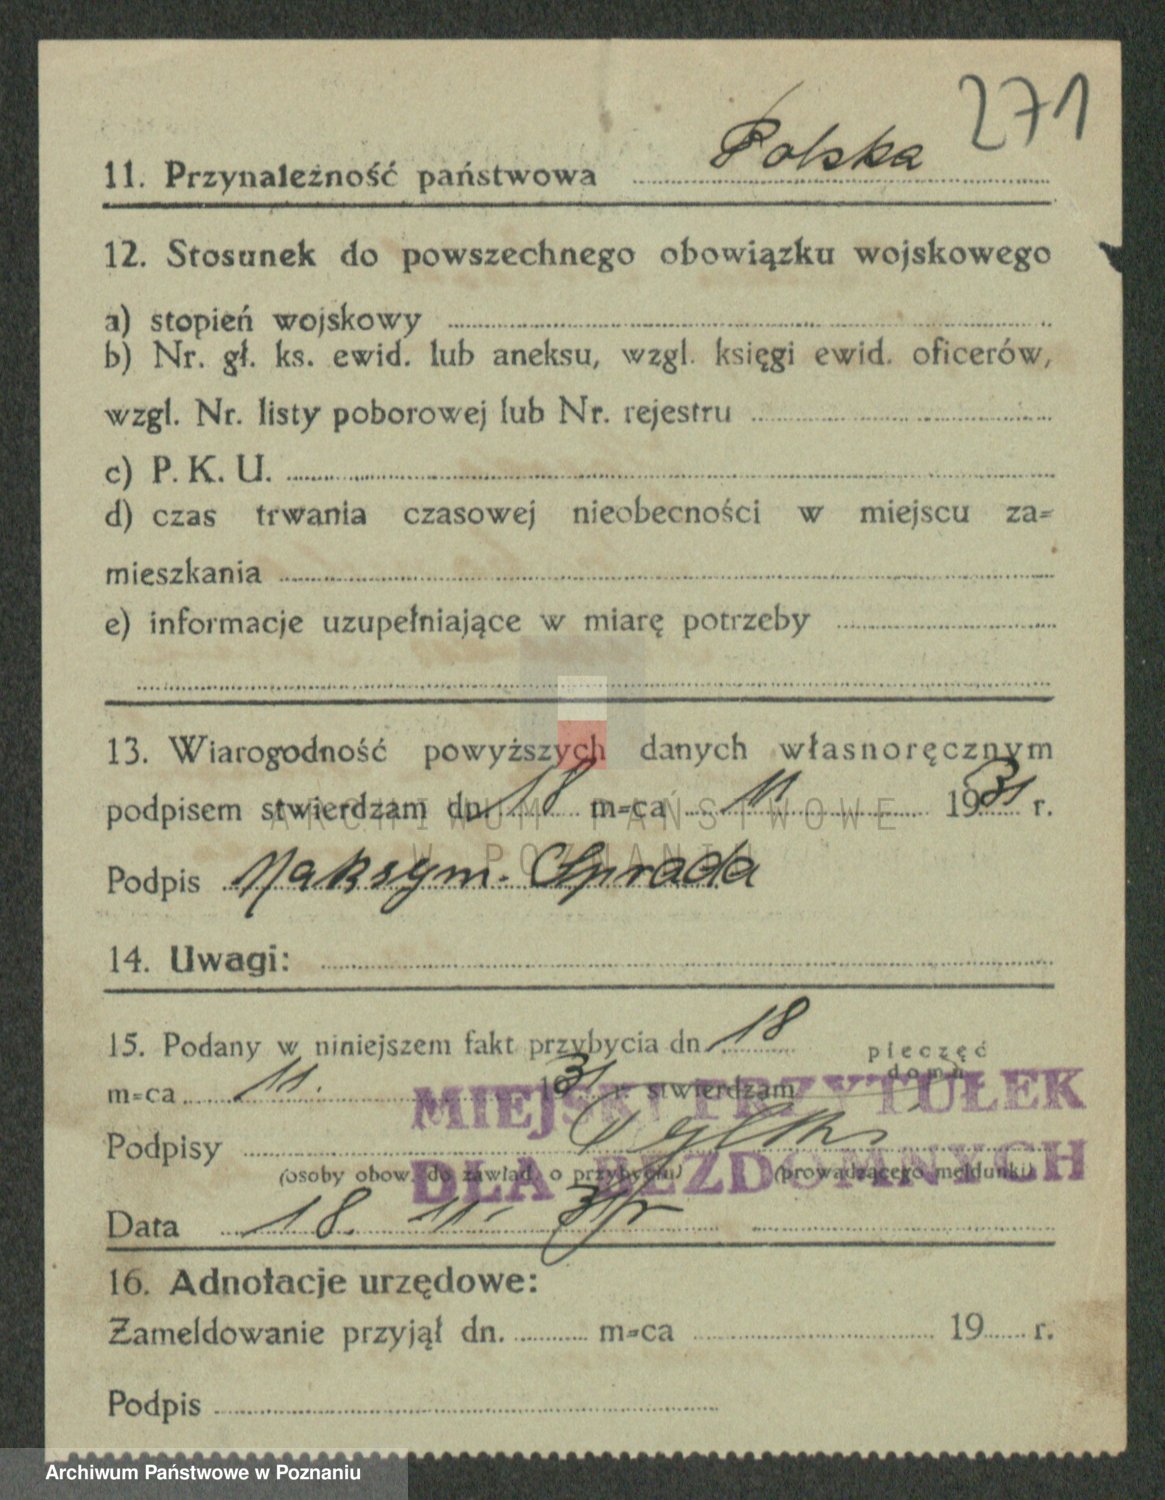 271
11. Przynależność państwowa Polska
12. Stosunek do powszechnego obowiązku wojskowego
a) stopień wojskowy
b) Nr. gł. ks. ewid. lub aneksu, wzgl. księgi ewid. oficerów,
wzgl. Nr. listy poborowej lub Nr. rejestru
c) P. K. U.
d) czas trwania czasowej nieobecności w miejscu za=
mieszkania
e) informacje uzupełniające w miarę potrzeby
13. Wiarogodność powyższych danych własnoręcznym
podpisem stwierdzam dn. 18 m=ca 11. 1931 r.
ARCHIWUM PAŃSTWOWE
W POZNANIU
Podpis Maksym. Sprada
14. Uwagi:
15. Podany w niniejszem fakt przybycia dn. 18
pieczęć
domu
m=ca 11. 1931 r. stwierdzam
MIEJSKI PRZYTUŁEK
Podpisy
(osoby obow. do zawiad. o przybyciu) (prowadzącego meldunki)
DLA BEZDOMNYCH
Data 18. 11. 31 r
16. Adnotacje urzędowe:
Zameldowanie przyjął dn. m=ca 19 r.
Podpis
Archiwum Państwowe w Poznaniu